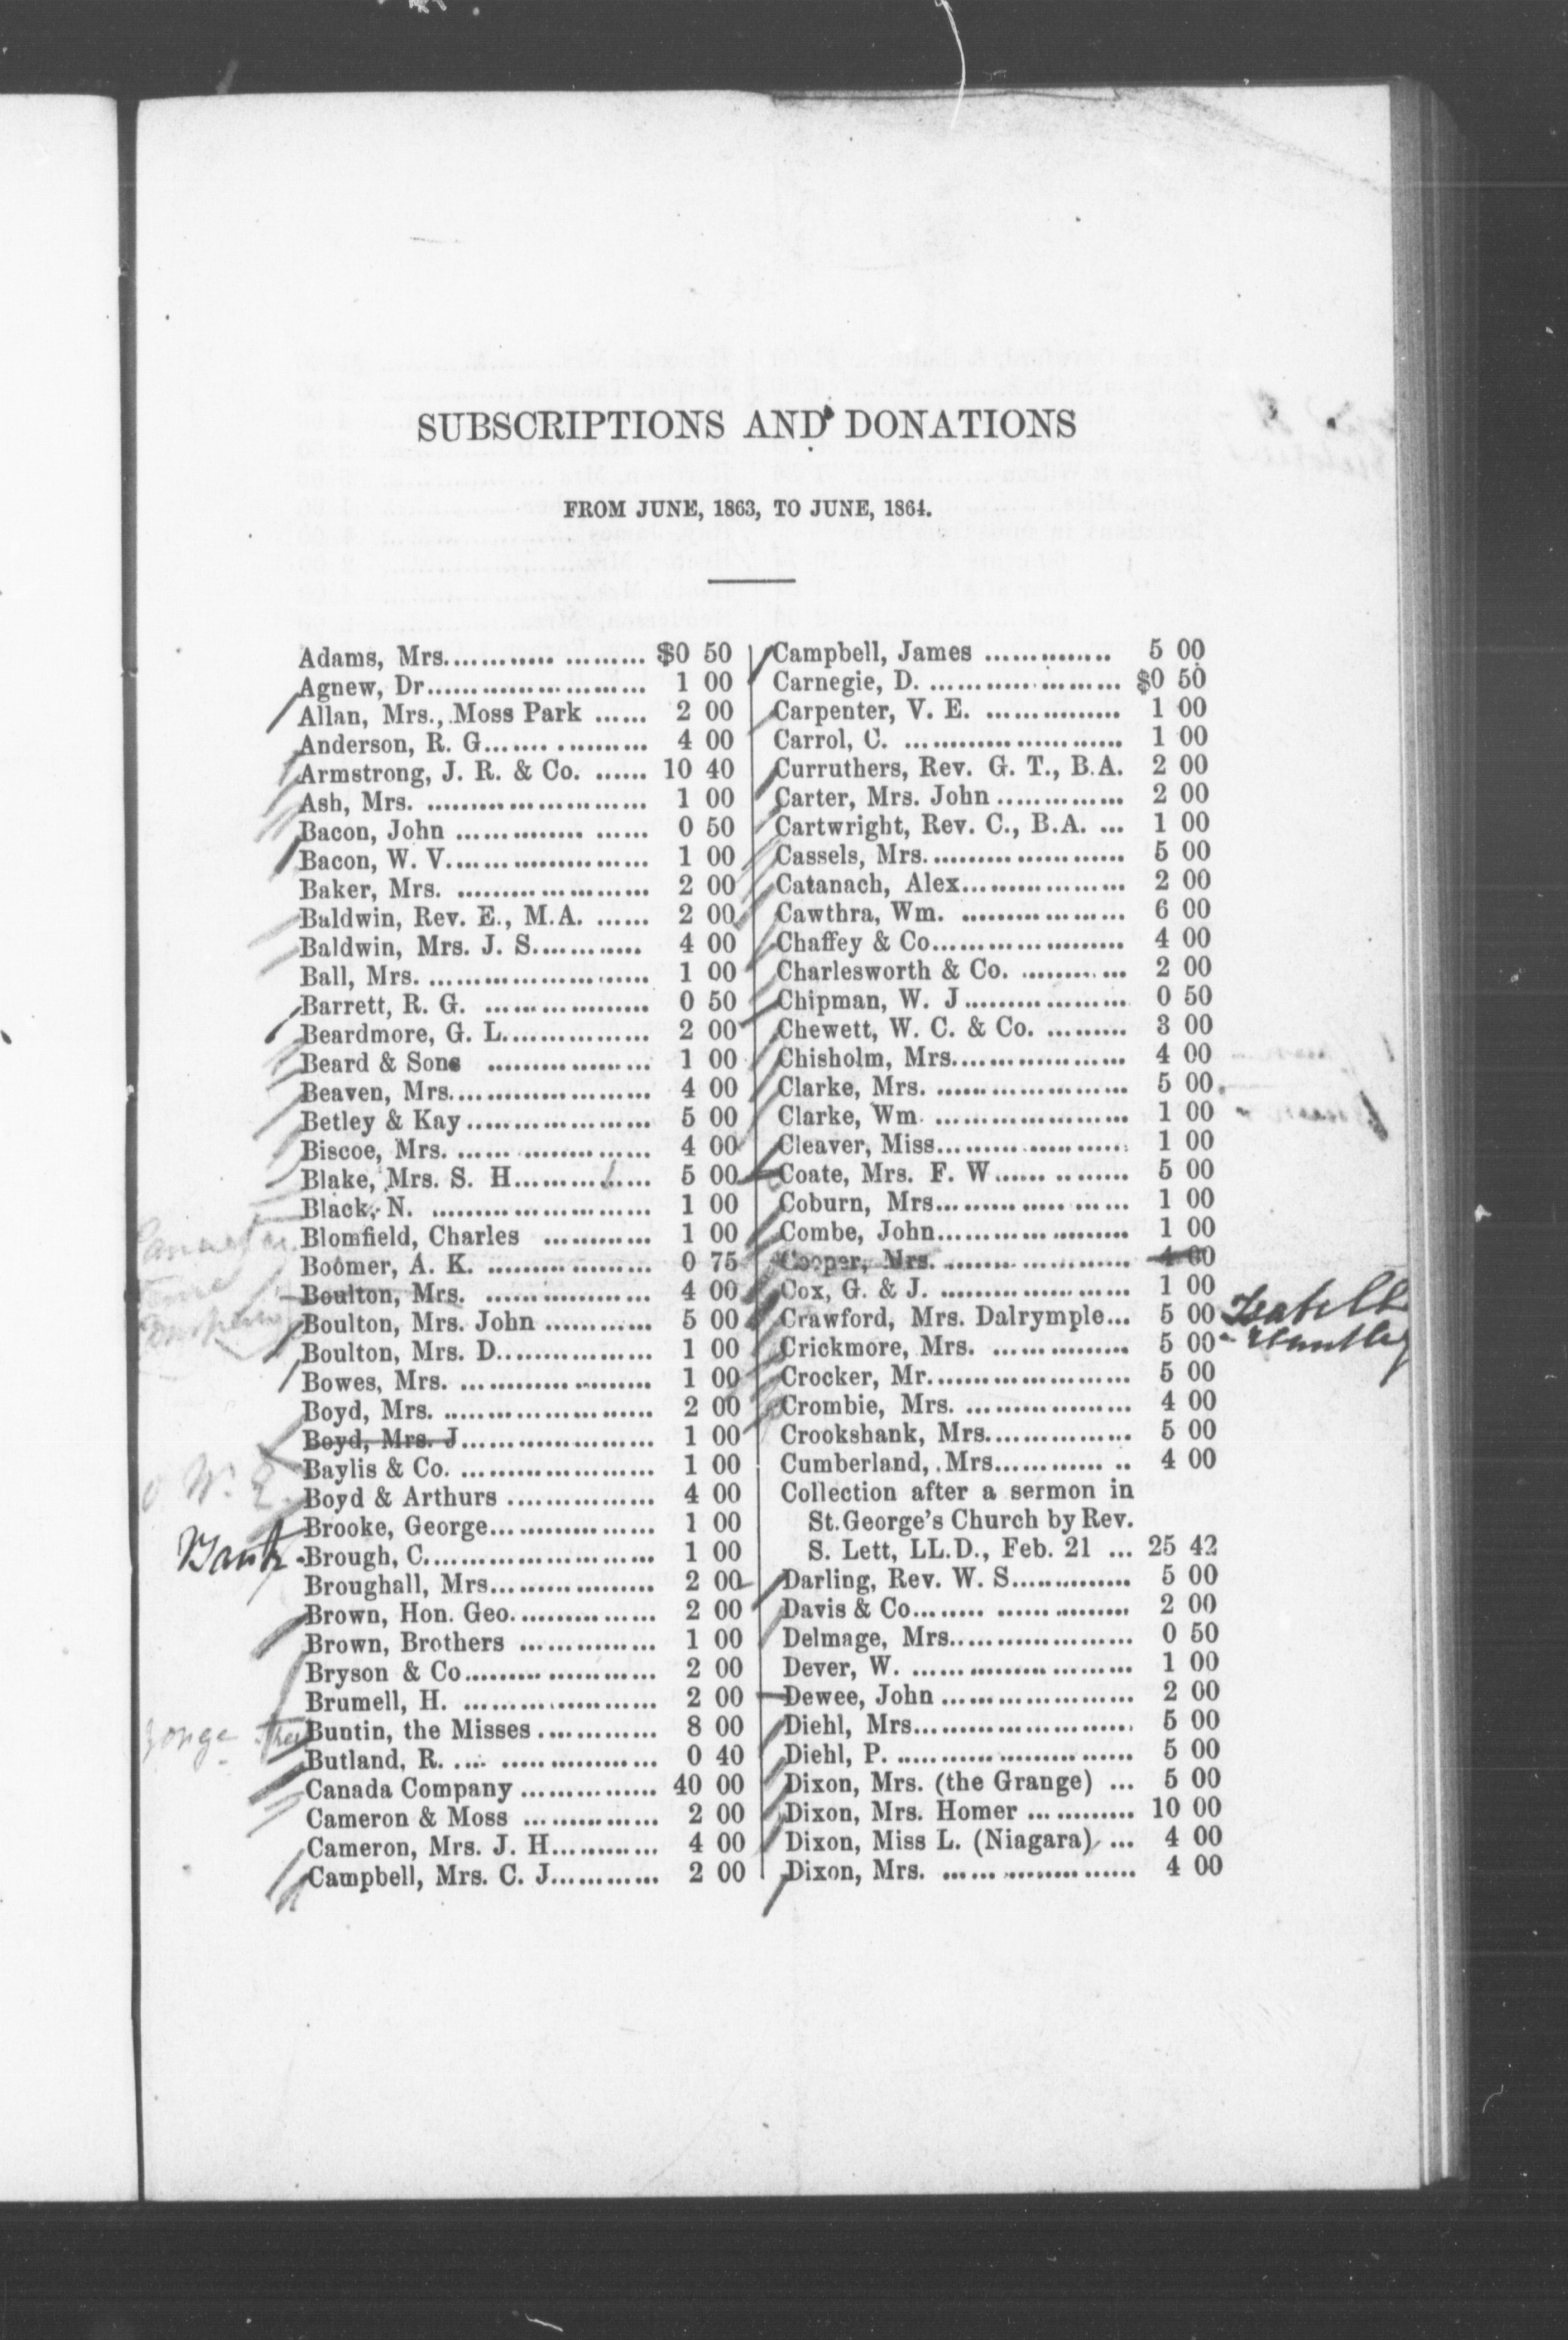 SUBSCRIPTIONS AND DONATIONS
FROM JUNE, 1863, TO JUNE, 1864.
Adams, Mrs. $0 50
Agnew, Dr. 1 00
Allan, Mrs., Moss Park ...... 2 00
Anderson, R. G. 4 00
Armstrong, J. R. & Co. ...... 10 40
Ash, Mrs. 1 00
Bacon, John 0 50
Bacon, W. V. 1 00
Baker, Mrs. 2 00
Baldwin, Rev. E., M.A. ...... 2 00
Baldwin, Mrs. J. S. 4 00
Ball, Mrs. 1 00
Barrett, R. G. 0 50
Beardmore, G. L. 2 00
Beard & Sons 1 00
Beaven, Mrs. 4 00
Betley & Kay 5 00
Biscoe, Mrs. 4 00
Blake, Mrs. S. H. 5 00
Black, N. 1 00
Blomfield, Charles 1 00
Boomer, A. K. 0 75
Boulton, Mrs. 4 00
Boulton, Mrs. John 5 00
Boulton, Mrs. D. 1 00
Bowes, Mrs. 1 00
Boyd, Mrs. 2 00
Boyd, Mrs. J. 1 00
Baylis & Co. 1 00
W. E.
Boyd & Arthurs 4 00
Brooke, George 1 00
Bank
Brough, C. 1 00
Broughall, Mrs. 2 00
Brown, Hon. Geo. 2 00
Brown, Brothers 1 00
Bryson & Co. 2 00
Brumell, H. 2 00
Buntin, the Misses 8 00
Butland, R. 0 40
Canada Company 40 00
Cameron & Moss 2 00
Cameron, Mrs. J. H. 4 00
Campbell, Mrs. C. J. 2 00
Campbell, James 5 00
Carnegie, D. $0 50
Carpenter, V. E. 1 00
Carrol, C. 1 00
Curruthers, Rev. G. T., B.A. 2 00
Carter, Mrs. John 2 00
Cartwright, Rev. C., B.A. ... 1 00
Cassels, Mrs. 5 00
Catanach, Alex. 2 00
Cawthra, Wm. 6 00
Chaffey & Co. 4 00
Charlesworth & Co. 2 00
Chipman, W. J. 0 50
Chewett, W. C. & Co. 3 00
Chisholm, Mrs. 4 00
Clarke, Mrs. 5 00
Clarke, Wm. 1 00
Cleaver, Miss 1 00
Coate, Mrs. F. W. 5 00
Coburn, Mrs. 1 00
Combe, John 1 00
Cooper, Mrs. 4 00
Cox, G. & J. 1 00
Crawford, Mrs. Dalrymple... 5 00
Crickmore, Mrs. 5 00
Crocker, Mr. 5 00
Crombie, Mrs. 4 00
Crookshank, Mrs. 5 00
Cumberland, Mrs. 4 00
Collection after a sermon in
St. George's Church by Rev.
S. Lett, LL.D., Feb. 21 ... 25 42
Darling, Rev. W. S. 5 00
Davis & Co. 2 00
Delmage, Mrs. 0 50
Dever, W. 1 00
Dewee, John 2 00
Diehl, Mrs. 5 00
Diehl, P. 5 00
Dixon, Mrs. (the Grange) ... 5 00
Dixon, Mrs. Homer 10 00
Dixon, Miss L. (Niagara) ... 4 00
Dixon, Mrs. 4 00